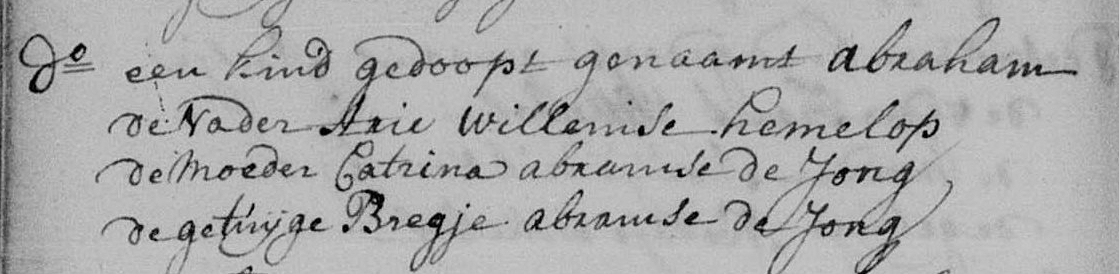 do een kind gedoopt genaamt abraham
de Vader Arie Willemse hemelop
de moeder Catrina abramse de Jong,
de getuijge Bregje abramse de Jong